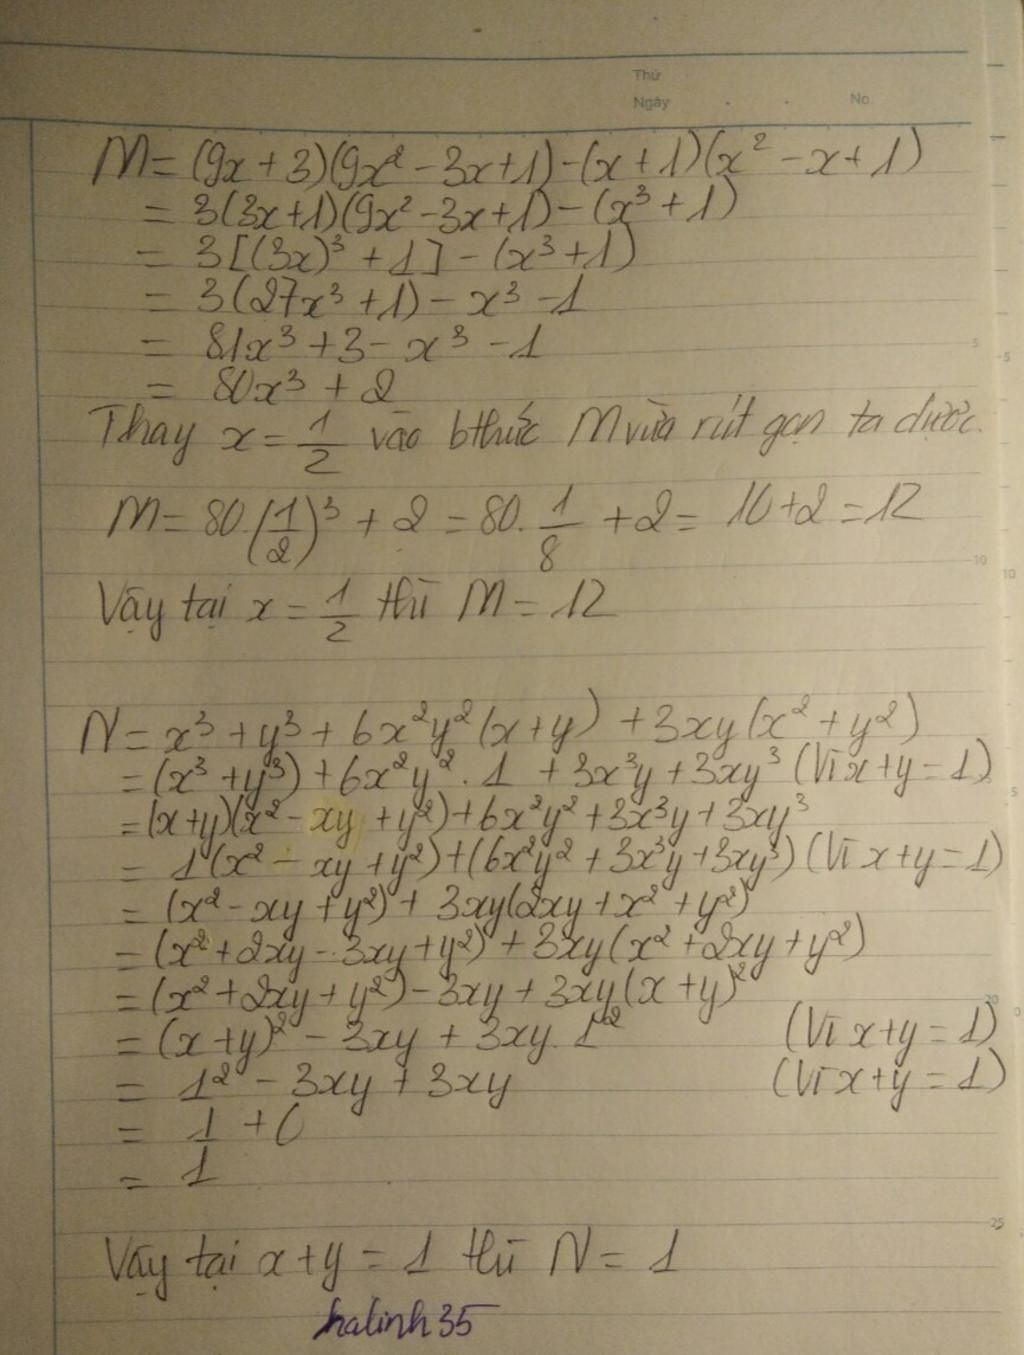 Thứ
Ngày
No.
M = (9x + 3)(9x² - 3x + 1) - (x + 1)(x² - x + 1)
= 3(3x + 1)(9x² - 3x + 1) - (x³ + 1)
= 3[(3x)³ + 1] - (x³ + 1)
= 3(27x³ + 1) - x³ - 1
= 81x³ + 3 - x³ - 1
5
5
= 80x³ + 2
Thay x = 1/2 vào bthức M vừa rút gọn ta được.
M = 80.(1/2)³ + 2 = 80. 1/8 + 2 = 10 + 2 = 12
10
10
Vậy tại x = 1/2 thì M = 12
N = x³ + y³ + 6x²y²(x + y) + 3xy(x² + y²)
= (x³ + y³) + 6x²y² . 1 + 3x³y + 3xy³ (Vì x + y = 1)
= (x + y)(x² - xy + y²) + 6x²y² + 3x³y + 3xy³
= 1(x² - xy + y²) + (6x²y² + 3x³y + 3xy³) (Vì x + y = 1)
= (x² - xy + y²) + 3xy(2xy + x² + y²)
= (x² + 2xy - 3xy + y²) + 3xy(x² + 2xy + y²)
= (x² + 2xy + y²) - 3xy + 3xy(x + y)²
20
= (x + y)² - 3xy + 3xy. 1² (Vì x + y = 1)
= 1² - 3xy + 3xy (Vì x + y = 1)
= 1 + 0
= 1
25
Vậy tại x + y = 1 thì N = 1
halinh35